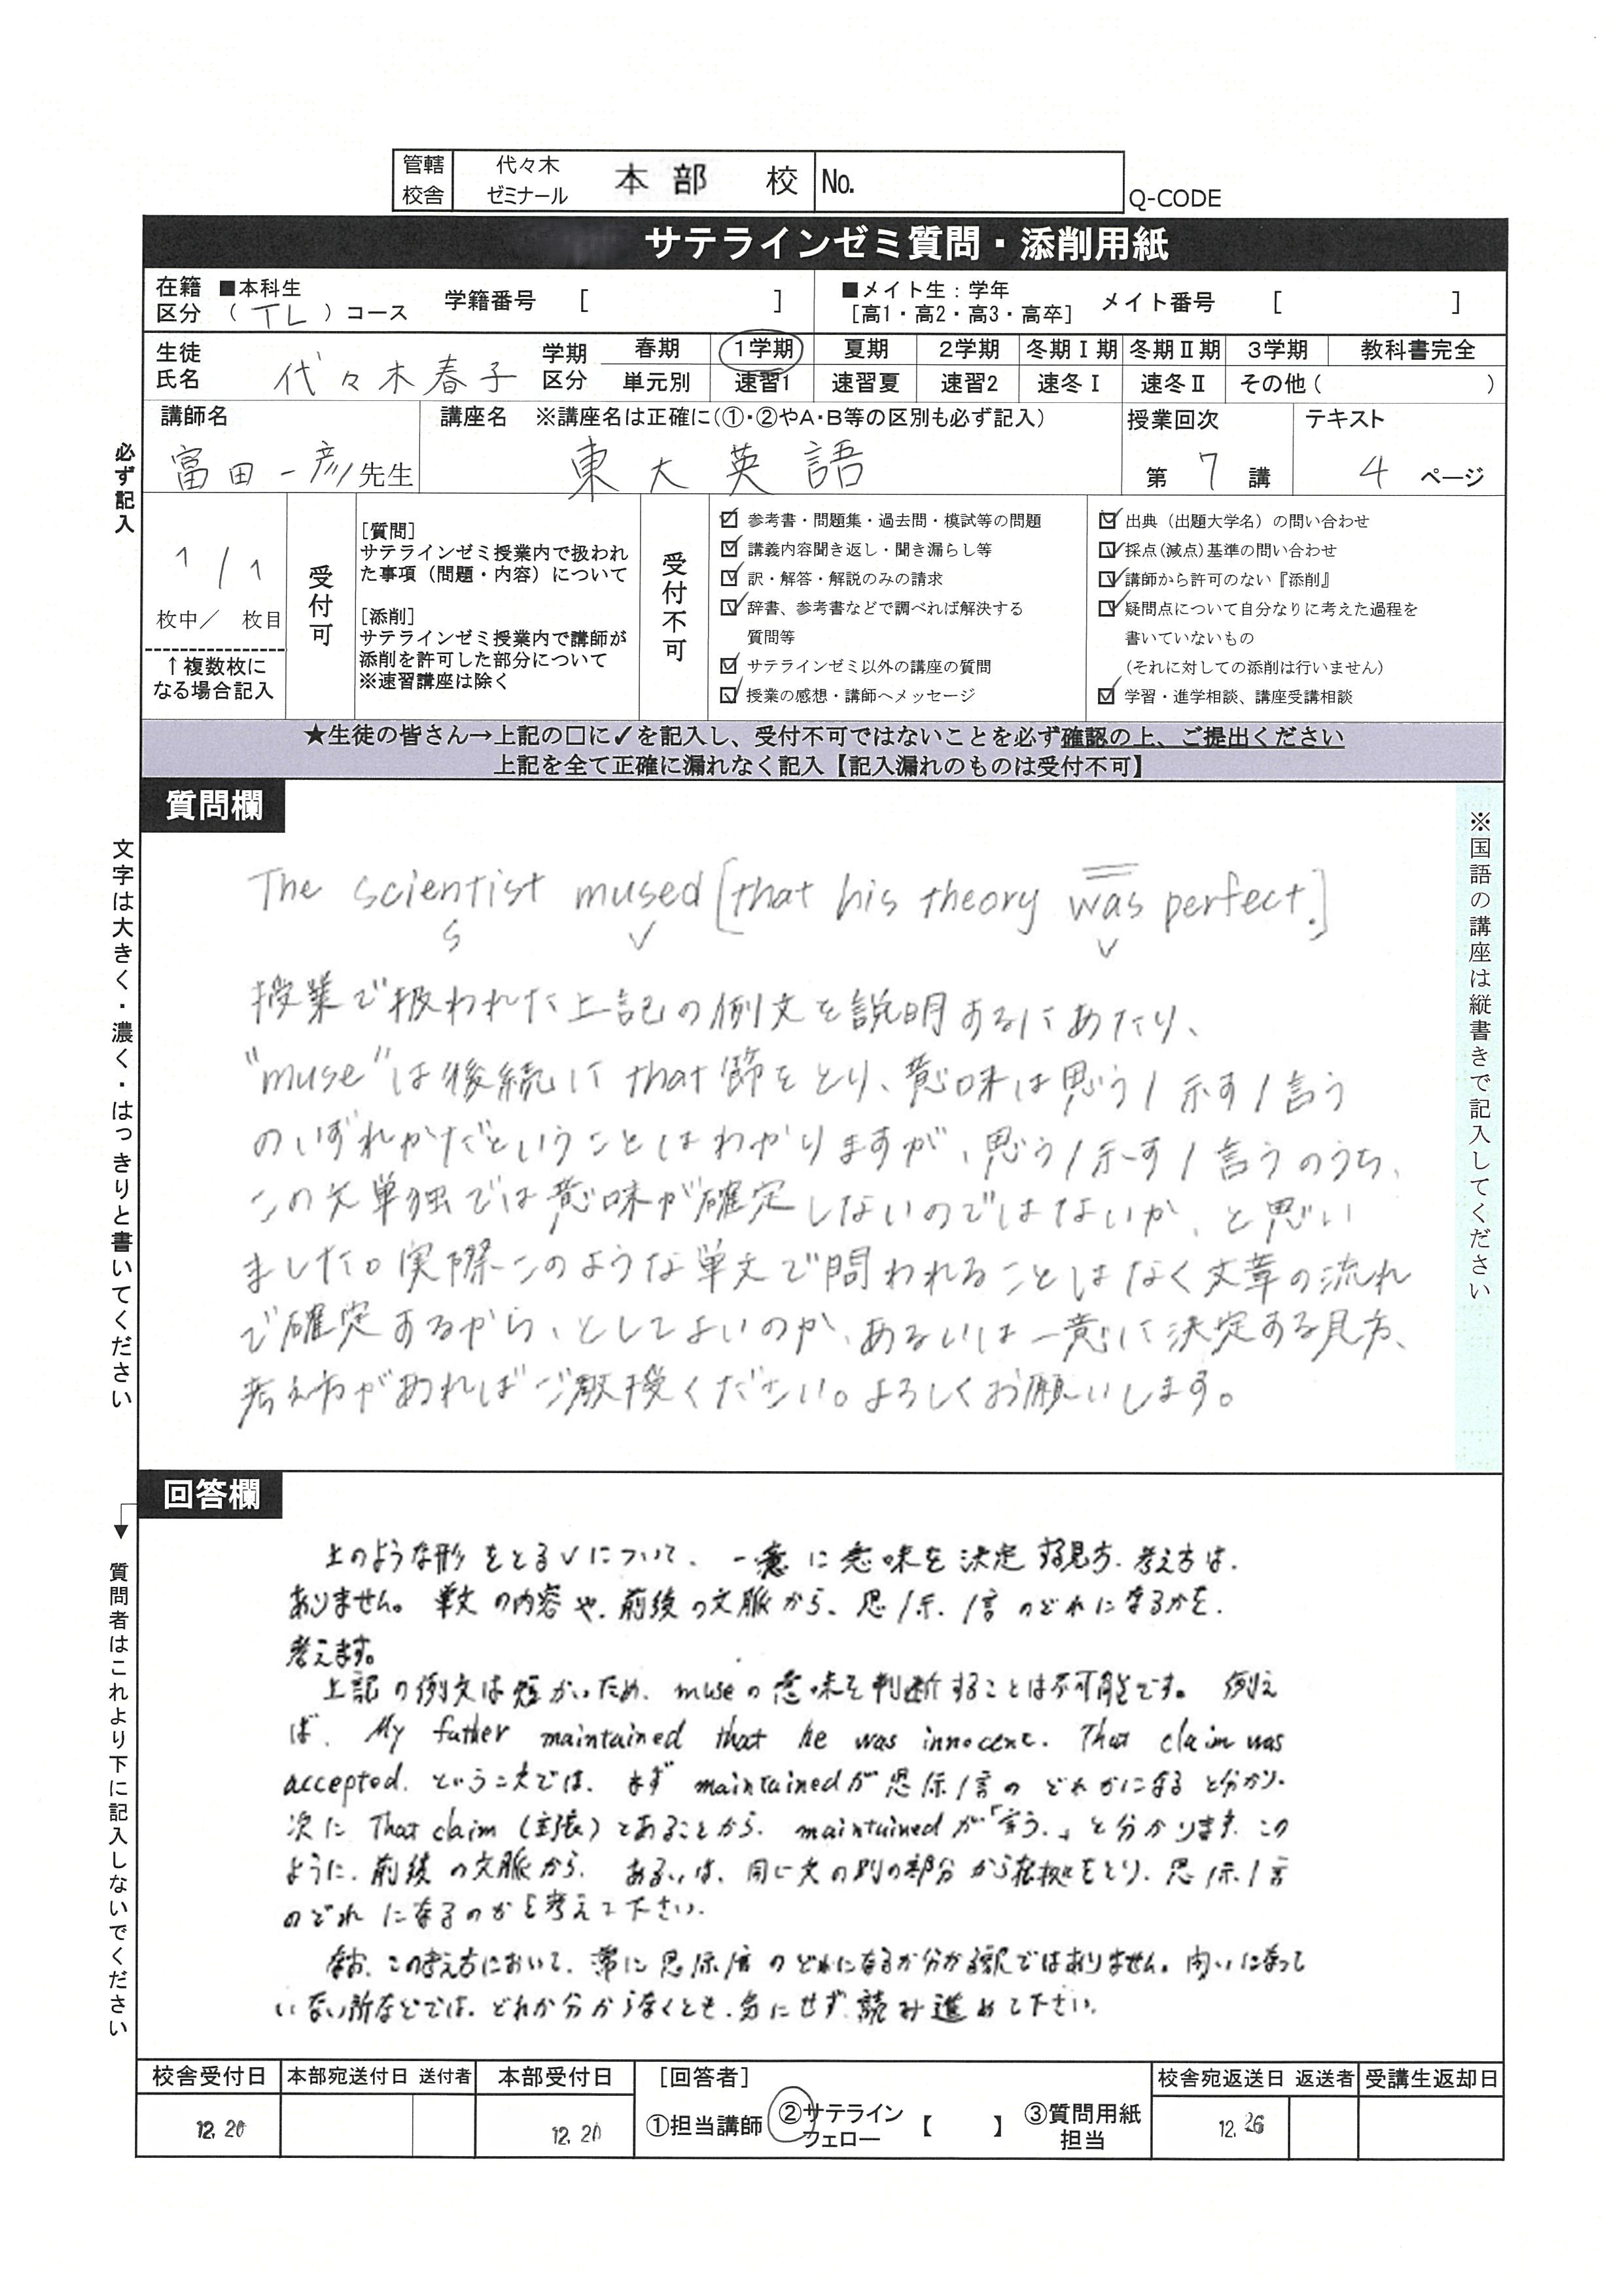 管轄校舎 代々木ゼミナール 本部 校 No.
Q-CODE
サテラインゼミ質問・添削用紙
在籍区分 ■本科生 (TL)コース 学籍番号 [ ]
■メイト生：学年 [高1・高2・高3・高卒] メイト番号 [ ]
生徒氏名 代々木春子
学期区分 春期 1学期 夏期 2学期 冬期Ⅰ期 冬期Ⅱ期 3学期 教科書完全
単元別 速習1 速習夏 速習2 速冬Ⅰ 速冬Ⅱ その他( )
講師名 富田一彦先生
講座名 ※講座名は正確に(①・②やA・B等の区別も必ず記入)
東大英語
授業回次 第7講
テキスト 4ページ
必ず記入
1/1
枚中/ 枚目
↑複数枚に
なる場合記入
受付可
[質問]
サテラインゼミ授業内で扱われ
た事項（問題・内容）について
[添削]
サテラインゼミ授業内で講師が
添削を許可した部分について
※速習講座は除く
受付不可
☑参考書・問題集・過去問・模試等の問題
☑講義内容聞き返し・聞き漏らし等
☑訳・解答・解説のみの請求
☑辞書、参考書などで調べれば解決する
質問等
☑サテラインゼミ以外の講座の質問
☑授業の感想・講師へメッセージ
☑出典（出題大学名）の問い合わせ
☑採点(減点)基準の問い合わせ
☑講師から許可のない『添削』
☑疑問点について自分なりに考えた過程を
書いていないもの
(それに対しての添削は行いません)
☑学習・進学相談、講座受講相談
★生徒の皆さん→上記の□に✓を記入し、受付不可ではないことを必ず確認の上、ご提出ください
上記を全て正確に漏れなく記入【記入漏れのものは受付不可】
質問欄
※国語の講座は縦書きで記入してください
文字は大きく・濃く・はっきりと書いてください
The scientist mused [that his theory was perfect.]
S V V
授業で扱われた上記の例文を説明するにあたり、
"muse"は後続に that 節をとり、意味は思う/示す/言う
のいずれかだということはわかりますが、思う/示す/言うのうち、
この文単独では意味が確定しないのではないか、と思い
ました。実際このような単文で問われることはなく文章の流れ
で確定するから、としてよいのか、あるいは一意に決定する見方、
考え方があればご教授ください。よろしくお願いします。
回答欄
質問者はこれより下に記入しないでください
上のような形をとるVについて、一意に意味を決定する見方、考え方は、
ありません。単文の内容や、前後の文脈から、思/示/言のどれになるかを、
考えます。
上記の例文は短かいため、museの意味を判断することは不可能です。例え
ば、My father maintained that he was innocent. That claim was
accepted. という文では、まず maintainedが思/示/言の どれかになると分かり、
次に That claim (主張)とあることから、maintainedが「言う」と分かります。この
ように、前後の文脈から、あるいは、同じ文の別の部分から根拠をとり、思/示/言
のどれになるのかを考えて下さい。
なお、この考え方において、常に思/示/言のどれになるか分かる訳ではありません。問いになって
いない所などでは、どれか分からなくとも、気にせず、読み進めて下さい。
校舎受付日 本部宛送付日 送付者 本部受付日 [回答者] 校舎宛返送日 返送者 受講生返却日
12.20 12.20 ①担当講師 ②サテラインフェロー 【 】 ③質問用紙担当 12.26